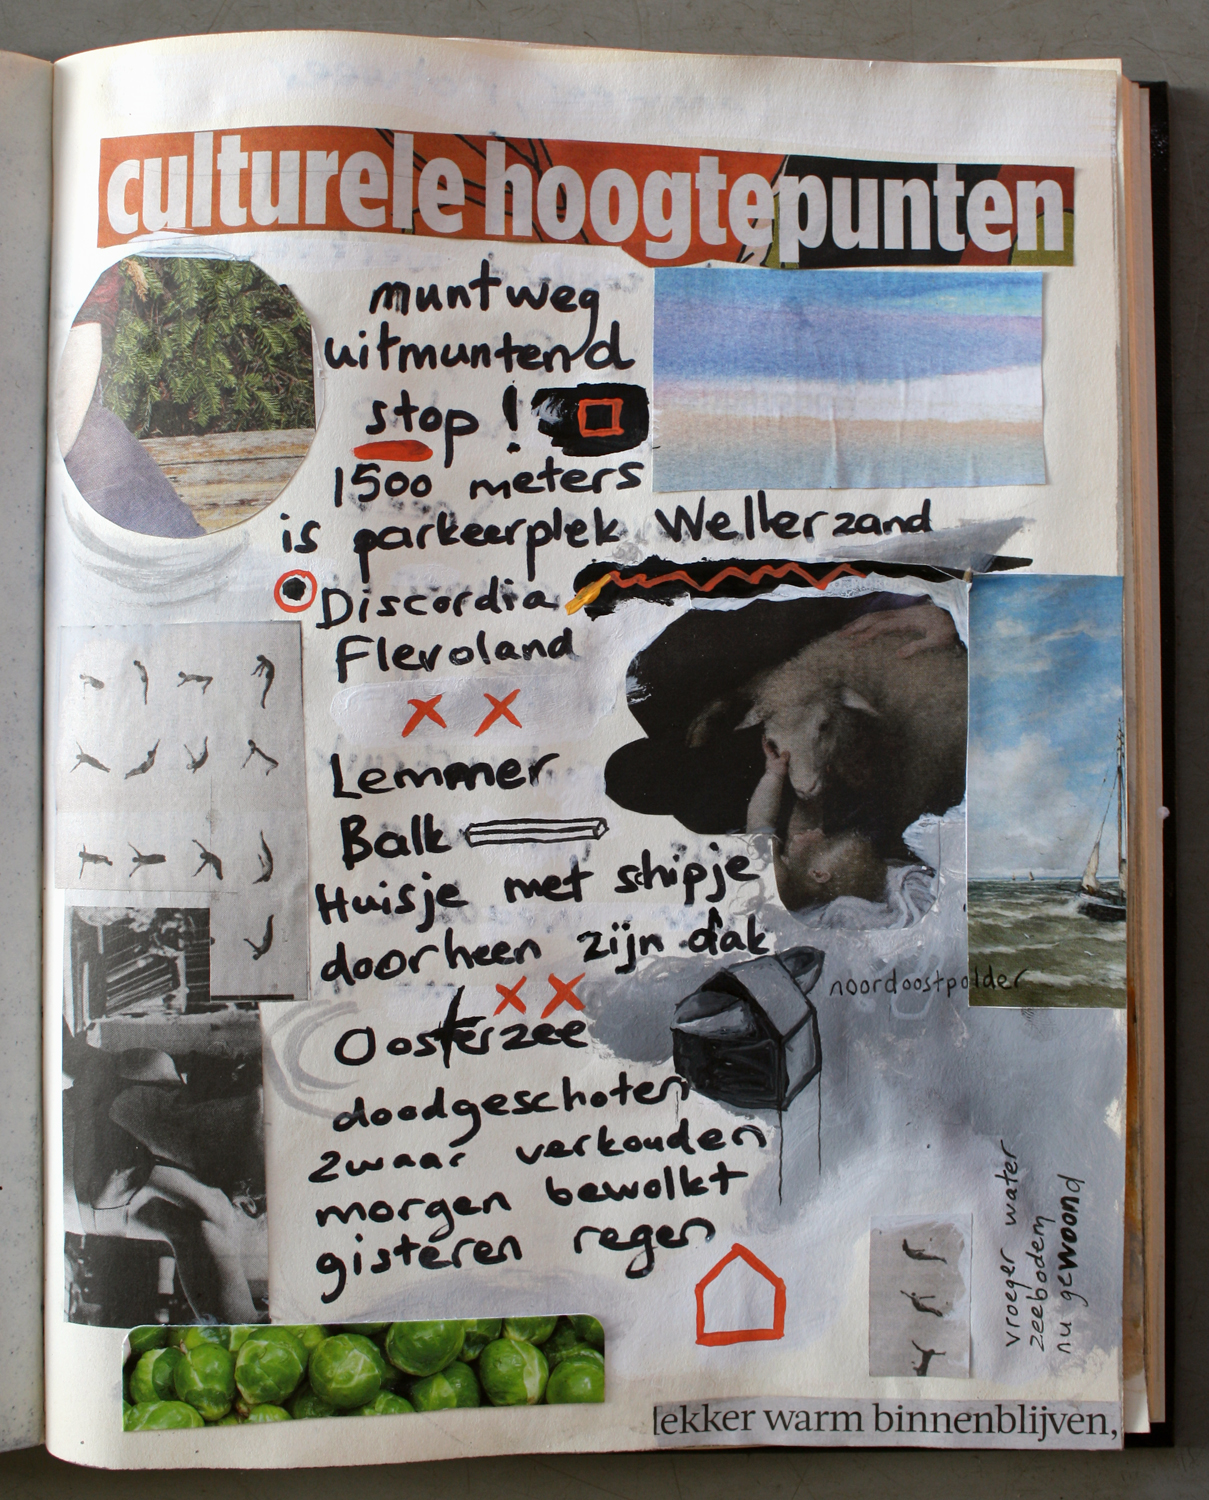 culturele hoogtepunten
muntweg
uitmuntend
stop !
1500 meters
is parkeerplek Wellerzand
Discordia
Flevoland
x x
Lemmer
Balk
Huisje met schipje
doorheen zijn dak
x x
noordoostpolder
Oosterzee
doodgeschoten
zwaar verkouden
morgen bewolkt
gisteren regen
vroeger water
zeebodem
nu gewoond
lekker warm binnenblijven,